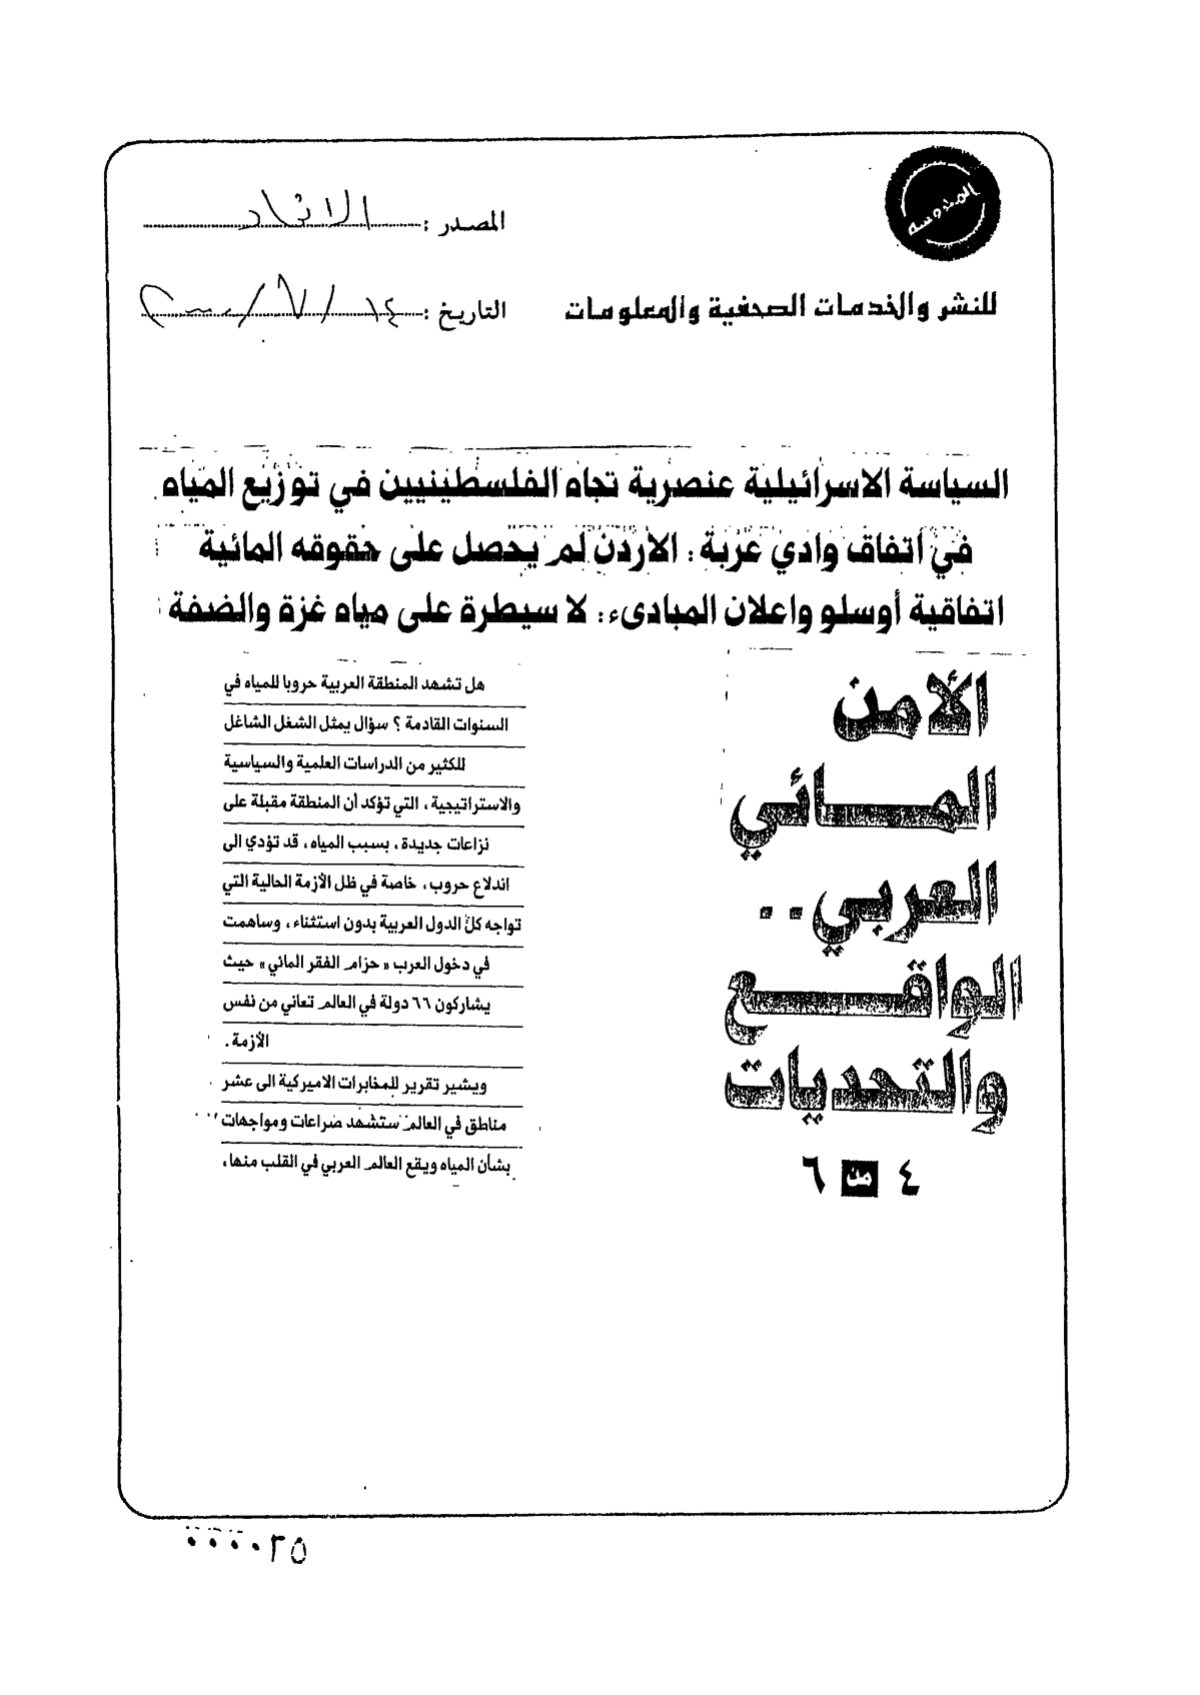 المصدر : الاتحاد
للنشر والخدمات الصحفية والمعلومات
التاريخ : ١٤ / ٧ /
السياسة الاسرائيلية عنصرية تجاه الفلسطينيين في توزيع المياه
في اتفاق وادي عربة : الأردن لم يحصل على حقوقه المائية
اتفاقية أوسلو واعلان المبادىء : لا سيطرة على مياه غزة والضفة
الأمن
المــائي
العربي . .
الواقــع
والتحديات
٤ من ٦
هل تشهد المنطقة العربية حروبا للمياه في
السنوات القادمة ؟ سؤال يمثل الشغل الشاغل
للكثير من الدراسات العلمية والسياسية
والاستراتيجية ، التي تؤكد أن المنطقة مقبلة على
نزاعات جديدة ، بسبب المياه ، قد تؤدي الى
اندلاع حروب ، خاصة في ظل الأزمة الحالية التي
تواجه كل الدول العربية بدون استثناء ، وساهمت
في دخول العرب « حزام الفقر المائي » حيث
يشاركون ٦٦ دولة في العالم تعاني من نفس
الأزمة .
ويشير تقرير للمخابرات الاميركية الى عشر
مناطق في العالم ستشهد صراعات ومواجهات
بشأن المياه ويقع العالم العربي في القلب منها ،
٠٠٠٠٢٥